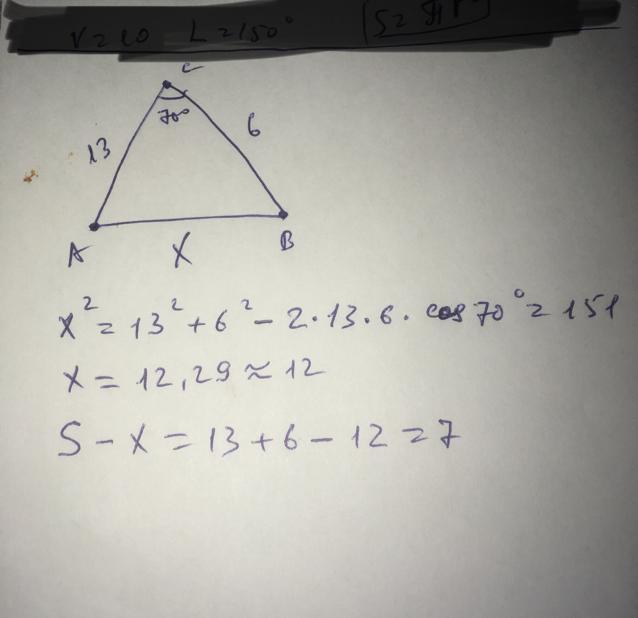 r = 10 L = 150° S = πr
C
70°
13
6
A
X
B
x² = 13² + 6² - 2·13·6·cos 70° = 151
x = 12,29 ≈ 12
S - x = 13 + 6 - 12 = 7